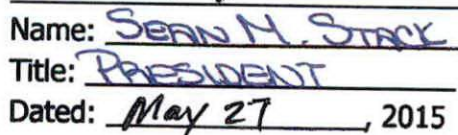 Name: SEAN M. STACK
Title: PRESIDENT
Dated: May 27, 2015